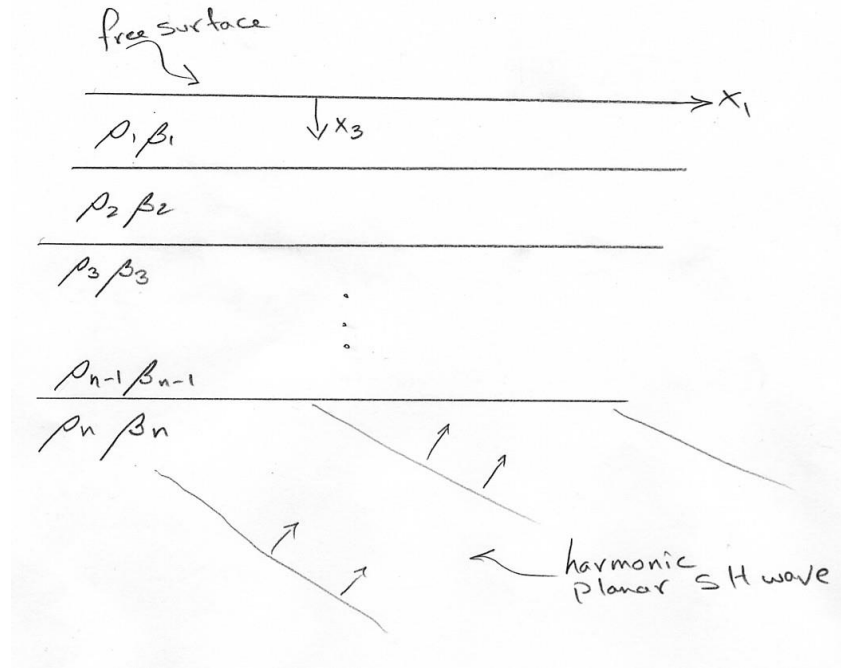 free surface
x₁
x₃
ρ₁ β₁
ρ₂ β₂
ρ₃ β₃
ρₙ₋₁ βₙ₋₁
ρₙ βₙ
harmonic
planar SH wave